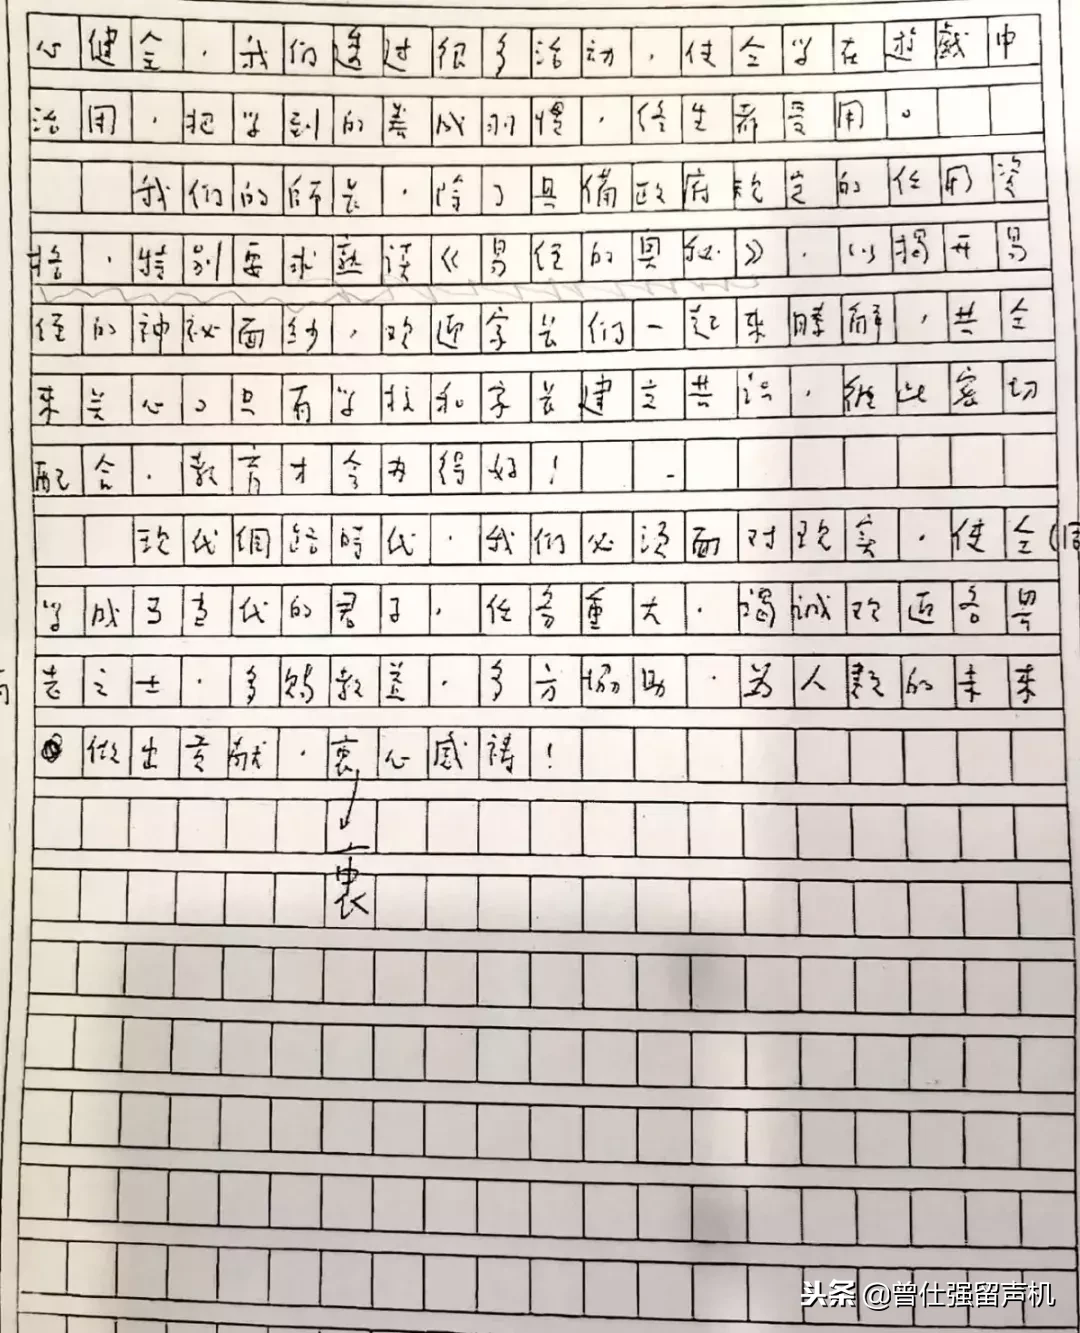 心健全，我们透过很多活动，使仝学在遊戲中
活用，把学到的養成習慣，终生都受用。
我们的師长，除了具備政府规定的任用资
格，特别要求熟读《易经的奥秘》，以揭开易
经的神祕面纱，欢迎家长们一起来瞭解，共仝
来关心。只有学校和家长建立共识，彼此密切
配合，教育才会办得好！
现代網路時代，我们必须面对现实，使仝(同
学成了当代的君子，任务重大，竭诚欢迎各界
志之士，多赐教益，多方协助，为人類的未来
做出贡献，衷心感祷！
衷
头条 @曾仕强留声机